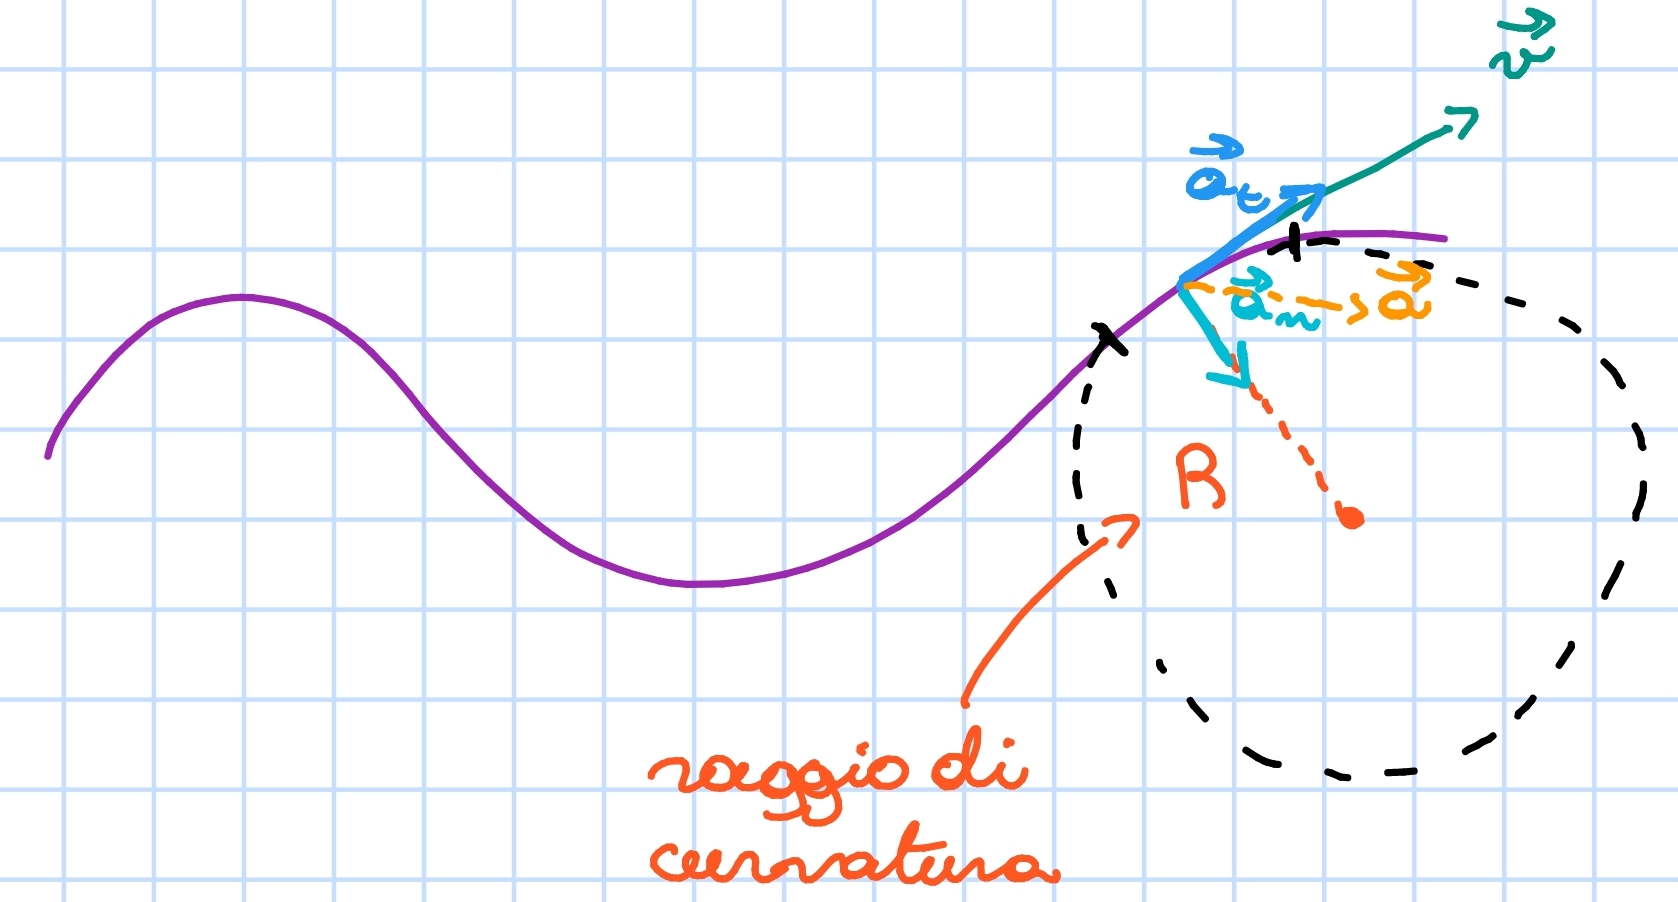 v⃗
a⃗t
a⃗n
a⃗
R
raggio di
curvatura